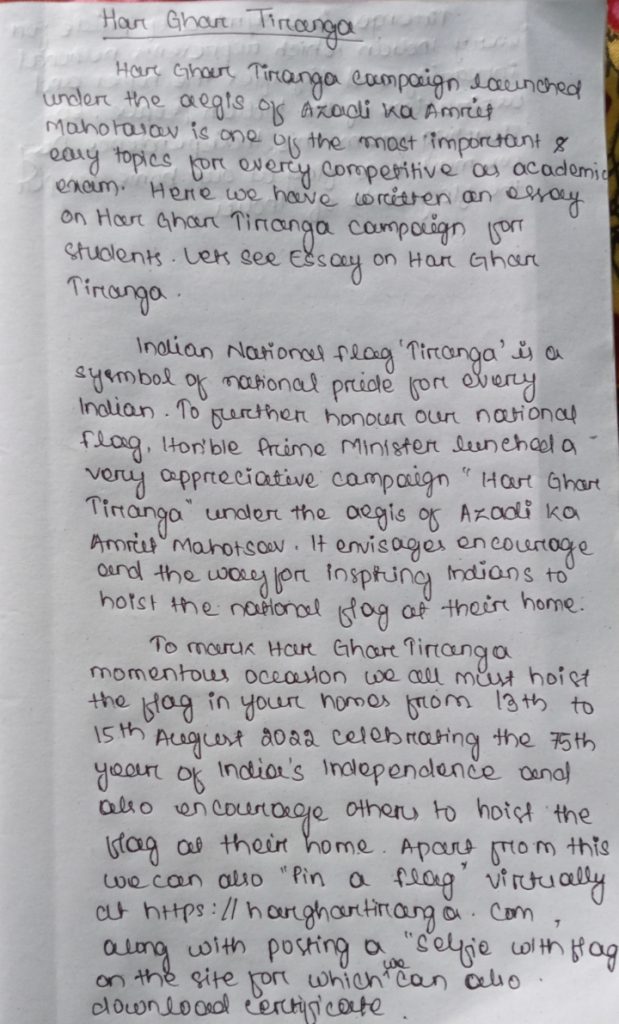 Har Ghar Tiranga
Har Ghar Tiranga campaign launched
under the aegis of Azadi ka Amrit
Mahotasav is one of the most important &
easy topics for every competitive as academic
exam. Here we have written an essay
on Har Ghar Tiranga campaign for
students. Lets see Essay on Har Ghar
Tiranga.
Indian National flag 'Tiranga' is a
syembol of national pride for every
Indian. To further honour our national
flag, Hon'ble Prime Minister lunched a
very appreciative campaign "Har Ghar
Tiranga" under the aegis of Azadi ka
Amrit Mahotsav. It envisages encourage
and the way for inspiring Indians to
hoist the national flag at their home.
To mark Har Ghar Tiranga
momentous occasion we all must hoist
the flag in your homes from 13th to
15th August 2022 celebrating the 75th
year of India's Independence and
also encourage others to hoist the
flag at their home. Apart from this
we can also "Pin a flag" virtually
at https://harghartiranga.com,
along with posting a "Selfie with flag
on the site for which we can also
download certificate.